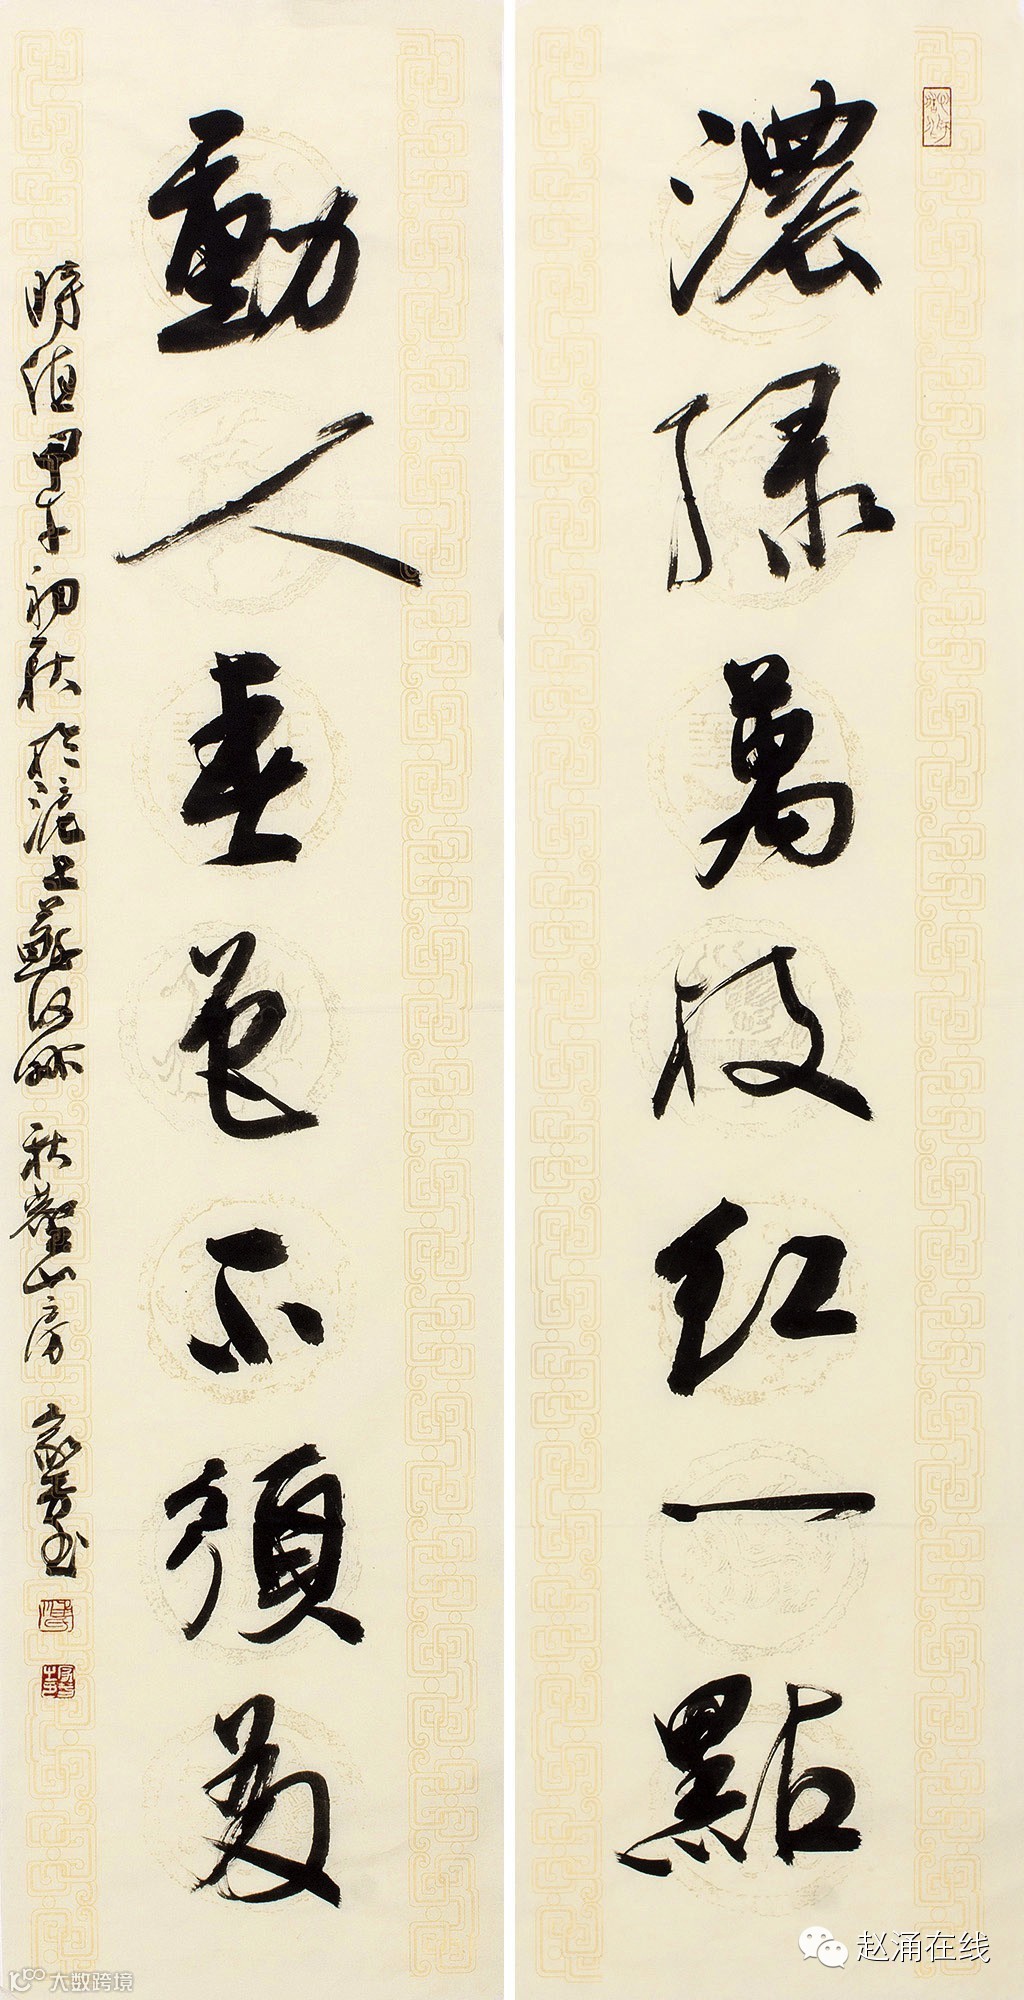 濃緑萬枝紅一點
動人春色不須多
時值甲午初秋於滬上蘇河畔 秋鑾山房 家晉書
赵涌在线
大数跨境